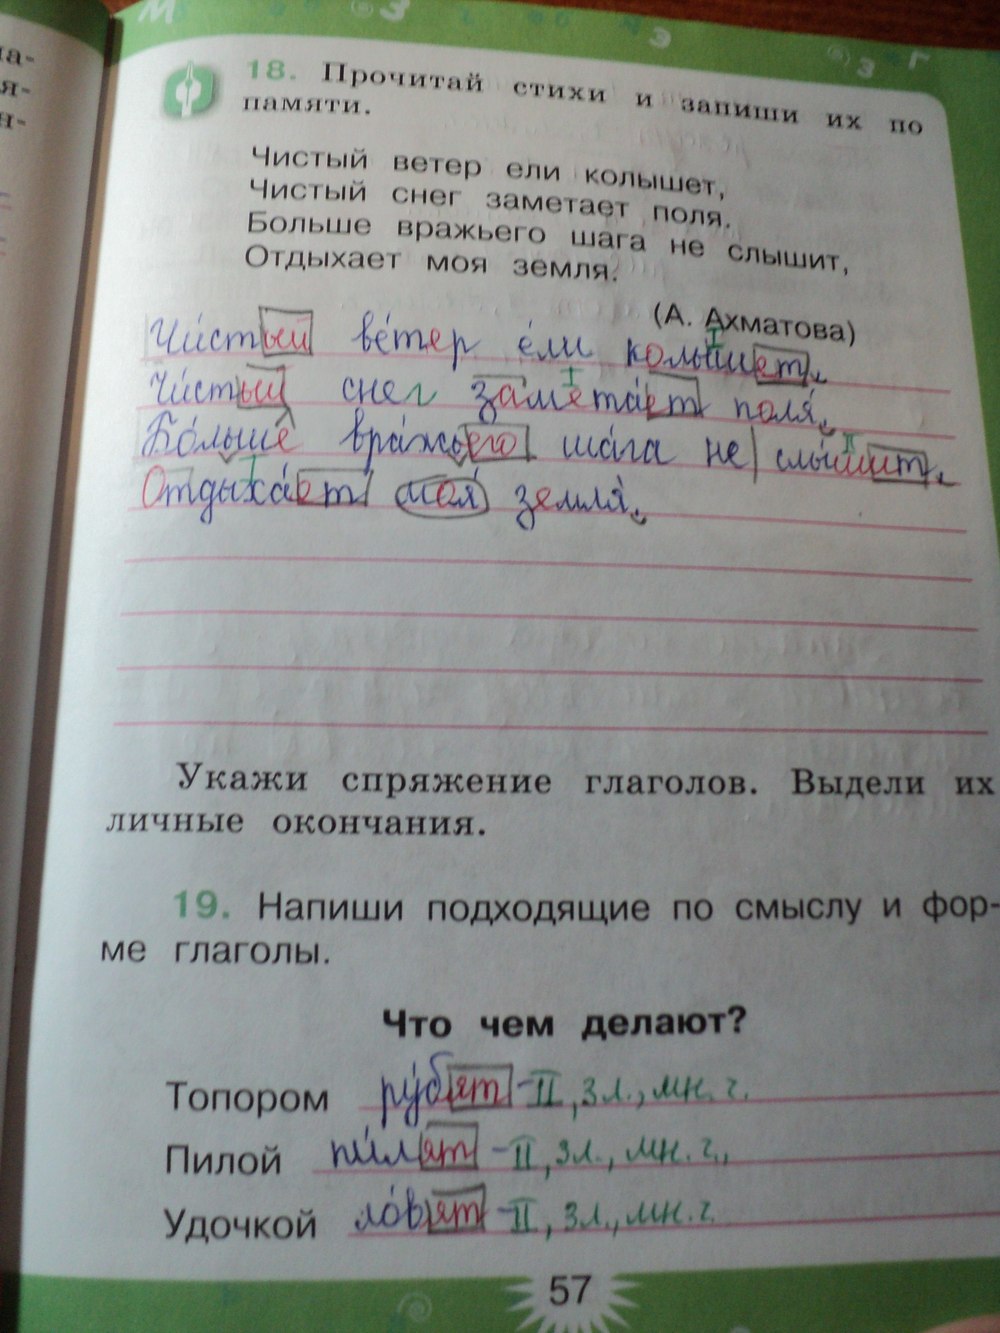 М З Э З Г
18. Прочитай стихи и запиши их по
памяти.
Чистый ветер ели колышет,
Чистый снег заметает поля.
Больше вражьего шага не слышит,
Отдыхает моя земля.
(А. Ахматова)
Чистый ветер ели колышет, I
Чистый снег заметает поля. I
Больше вражьего шага не слышит, II
Отдыхает моя земля. I
Укажи спряжение глаголов. Выдели их
личные окончания.
19. Напиши подходящие по смыслу и фор-
ме глаголы.
Что чем делают?
Топором рубят - II, 3л., мн. ч.
Пилой пилят - II, 3л., мн. ч.,
Удочкой ловят - II, 3л., мн. ч.
57